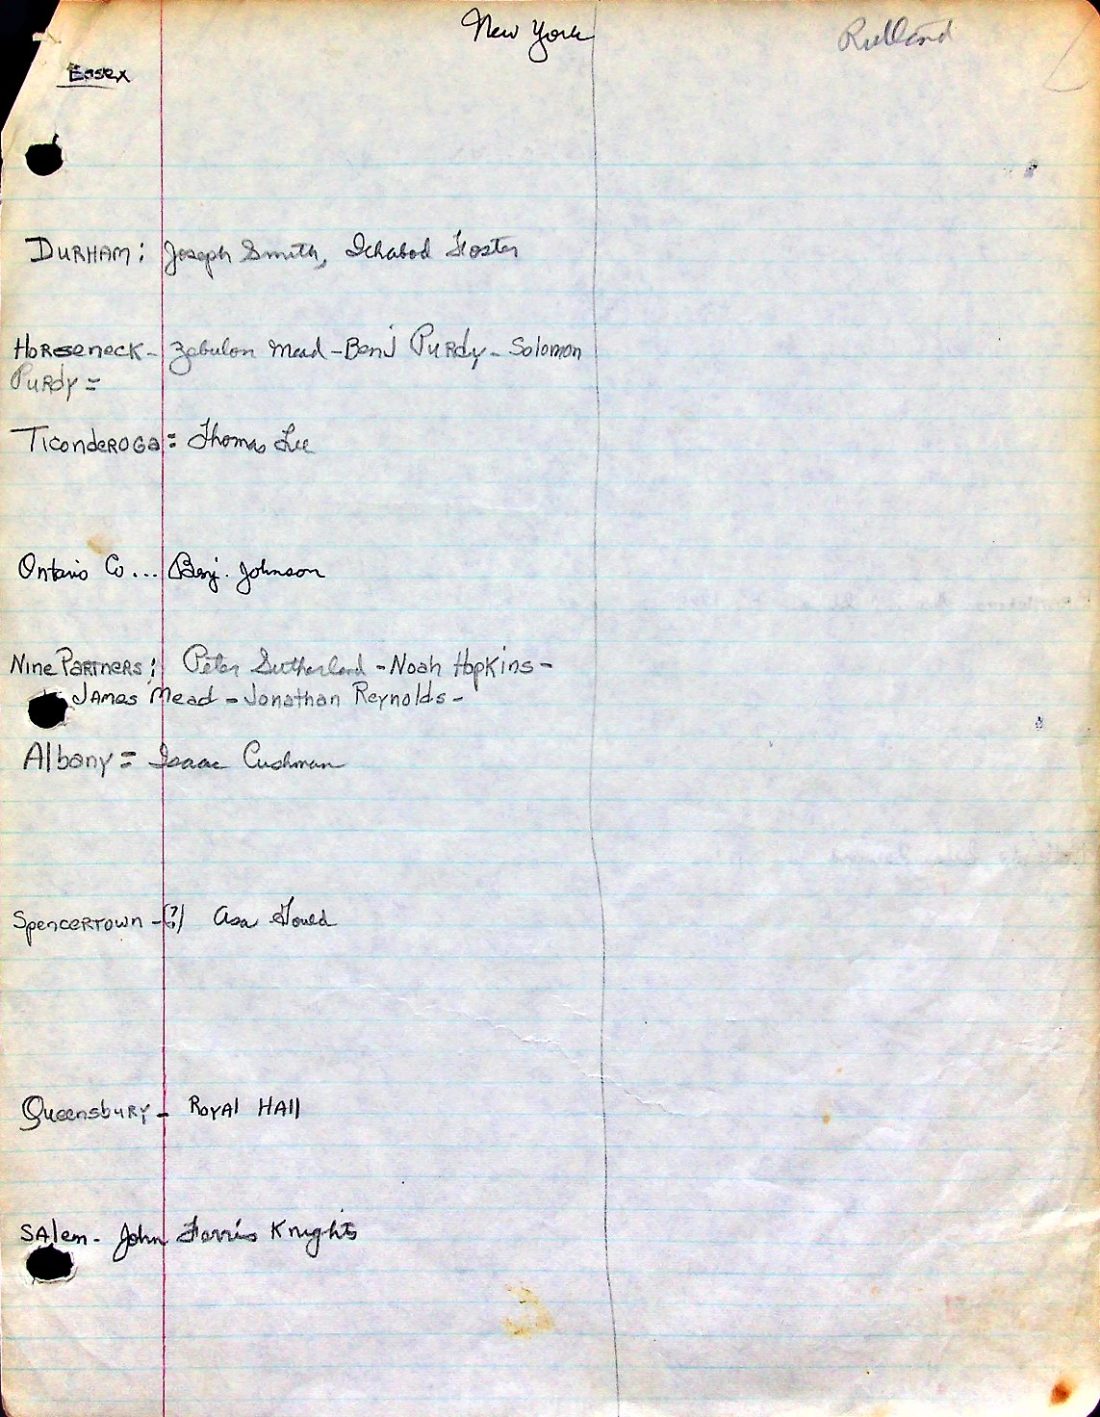 New York
Rutland
Essex
DURHAM: Joseph Smith, Ichabod Foster
Horseneck - Zebulon Mead - Benj Purdy - Solomon
Purdy =
Ticonderoga = Thomas Lee
Ontario Co... Benj. Johnson
Nine Partners; Peter Sutherland - Noah Hopkins -
James Mead - Jonathan Reynolds -
Albany = Isaac Cushman
Spencertown - (?) Asa Gould
Queensbury - Royal Hall
Salem - John Ferris Knights